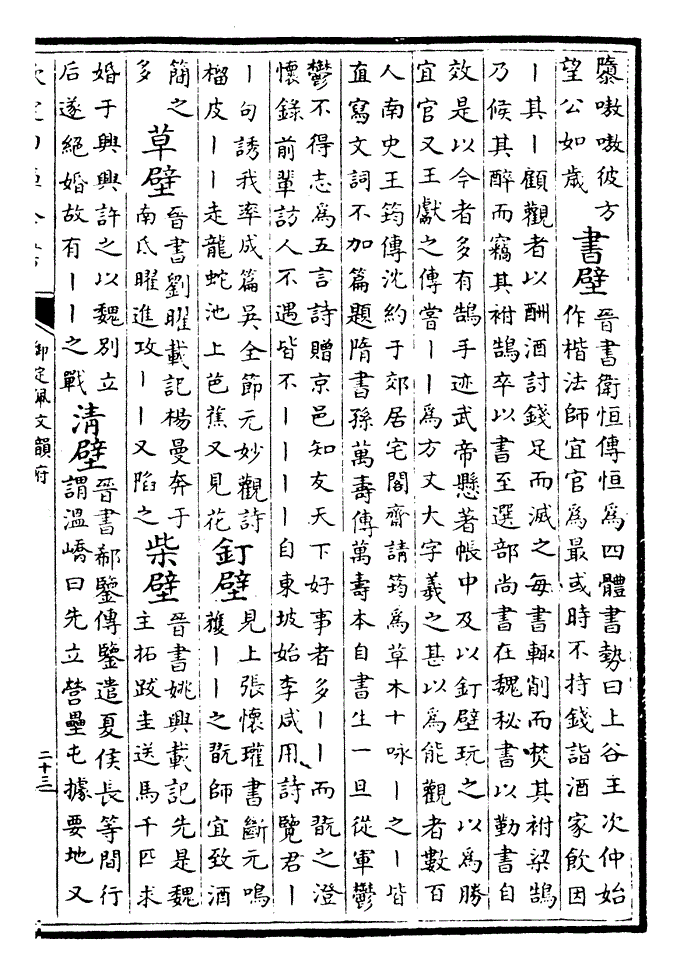 隳嗷嗷彼方
望公如歲
書壁
晉書衛恒傳恒為四體書勢曰上谷王次仲始
作楷法師宜官為最或時不持錢詣酒家飲因
丨其丨顧觀者以酬酒討錢足而滅之每書輙削而焚其柎梁鵠
乃候其醉而竊其柎鵠卒以書至選部尚書在魏秘書以勤書自
效是以今者多有鵠手迹武帝懸著帳中及以釘壁玩之以為勝
宜官又王獻之傳嘗丨丨為方丈大字羲之甚以為能觀者數百
人南史王筠傳沈約于郊居宅閣齋請筠為草木十咏丨之丨皆
直寫文詞不加篇題隋書孫萬壽傳萬壽本自書生一旦從軍鬱
鬱不得志為五言詩贈京邑知友天下好事者多丨丨而翫之澄
懷錄前輩訪人不遇皆不丨丨丨丨自東坡始李咸用詩覽君丨
丨句誘我率成篇吳全節元妙觀詩
榴皮丨丨走龍蛇池上芭蕉又見花
釘壁
見上張懷瓘書斷元鳴
穫丨丨之翫師宜致酒
簡之
多
草壁
晉書劉曜載記楊曼奔于
南氐曜進攻丨丨又陷之
柴壁
晉書姚興載記先是魏
主拓跋圭送馬千匹求
婚于興興許之以魏別立
后遂絕婚故有丨丨之戰
清壁
晉書郗鑒傳鑒遣夏侯長等間行
謂溫嶠曰先立營壘屯據要地又
御定佩文韻府
二十三